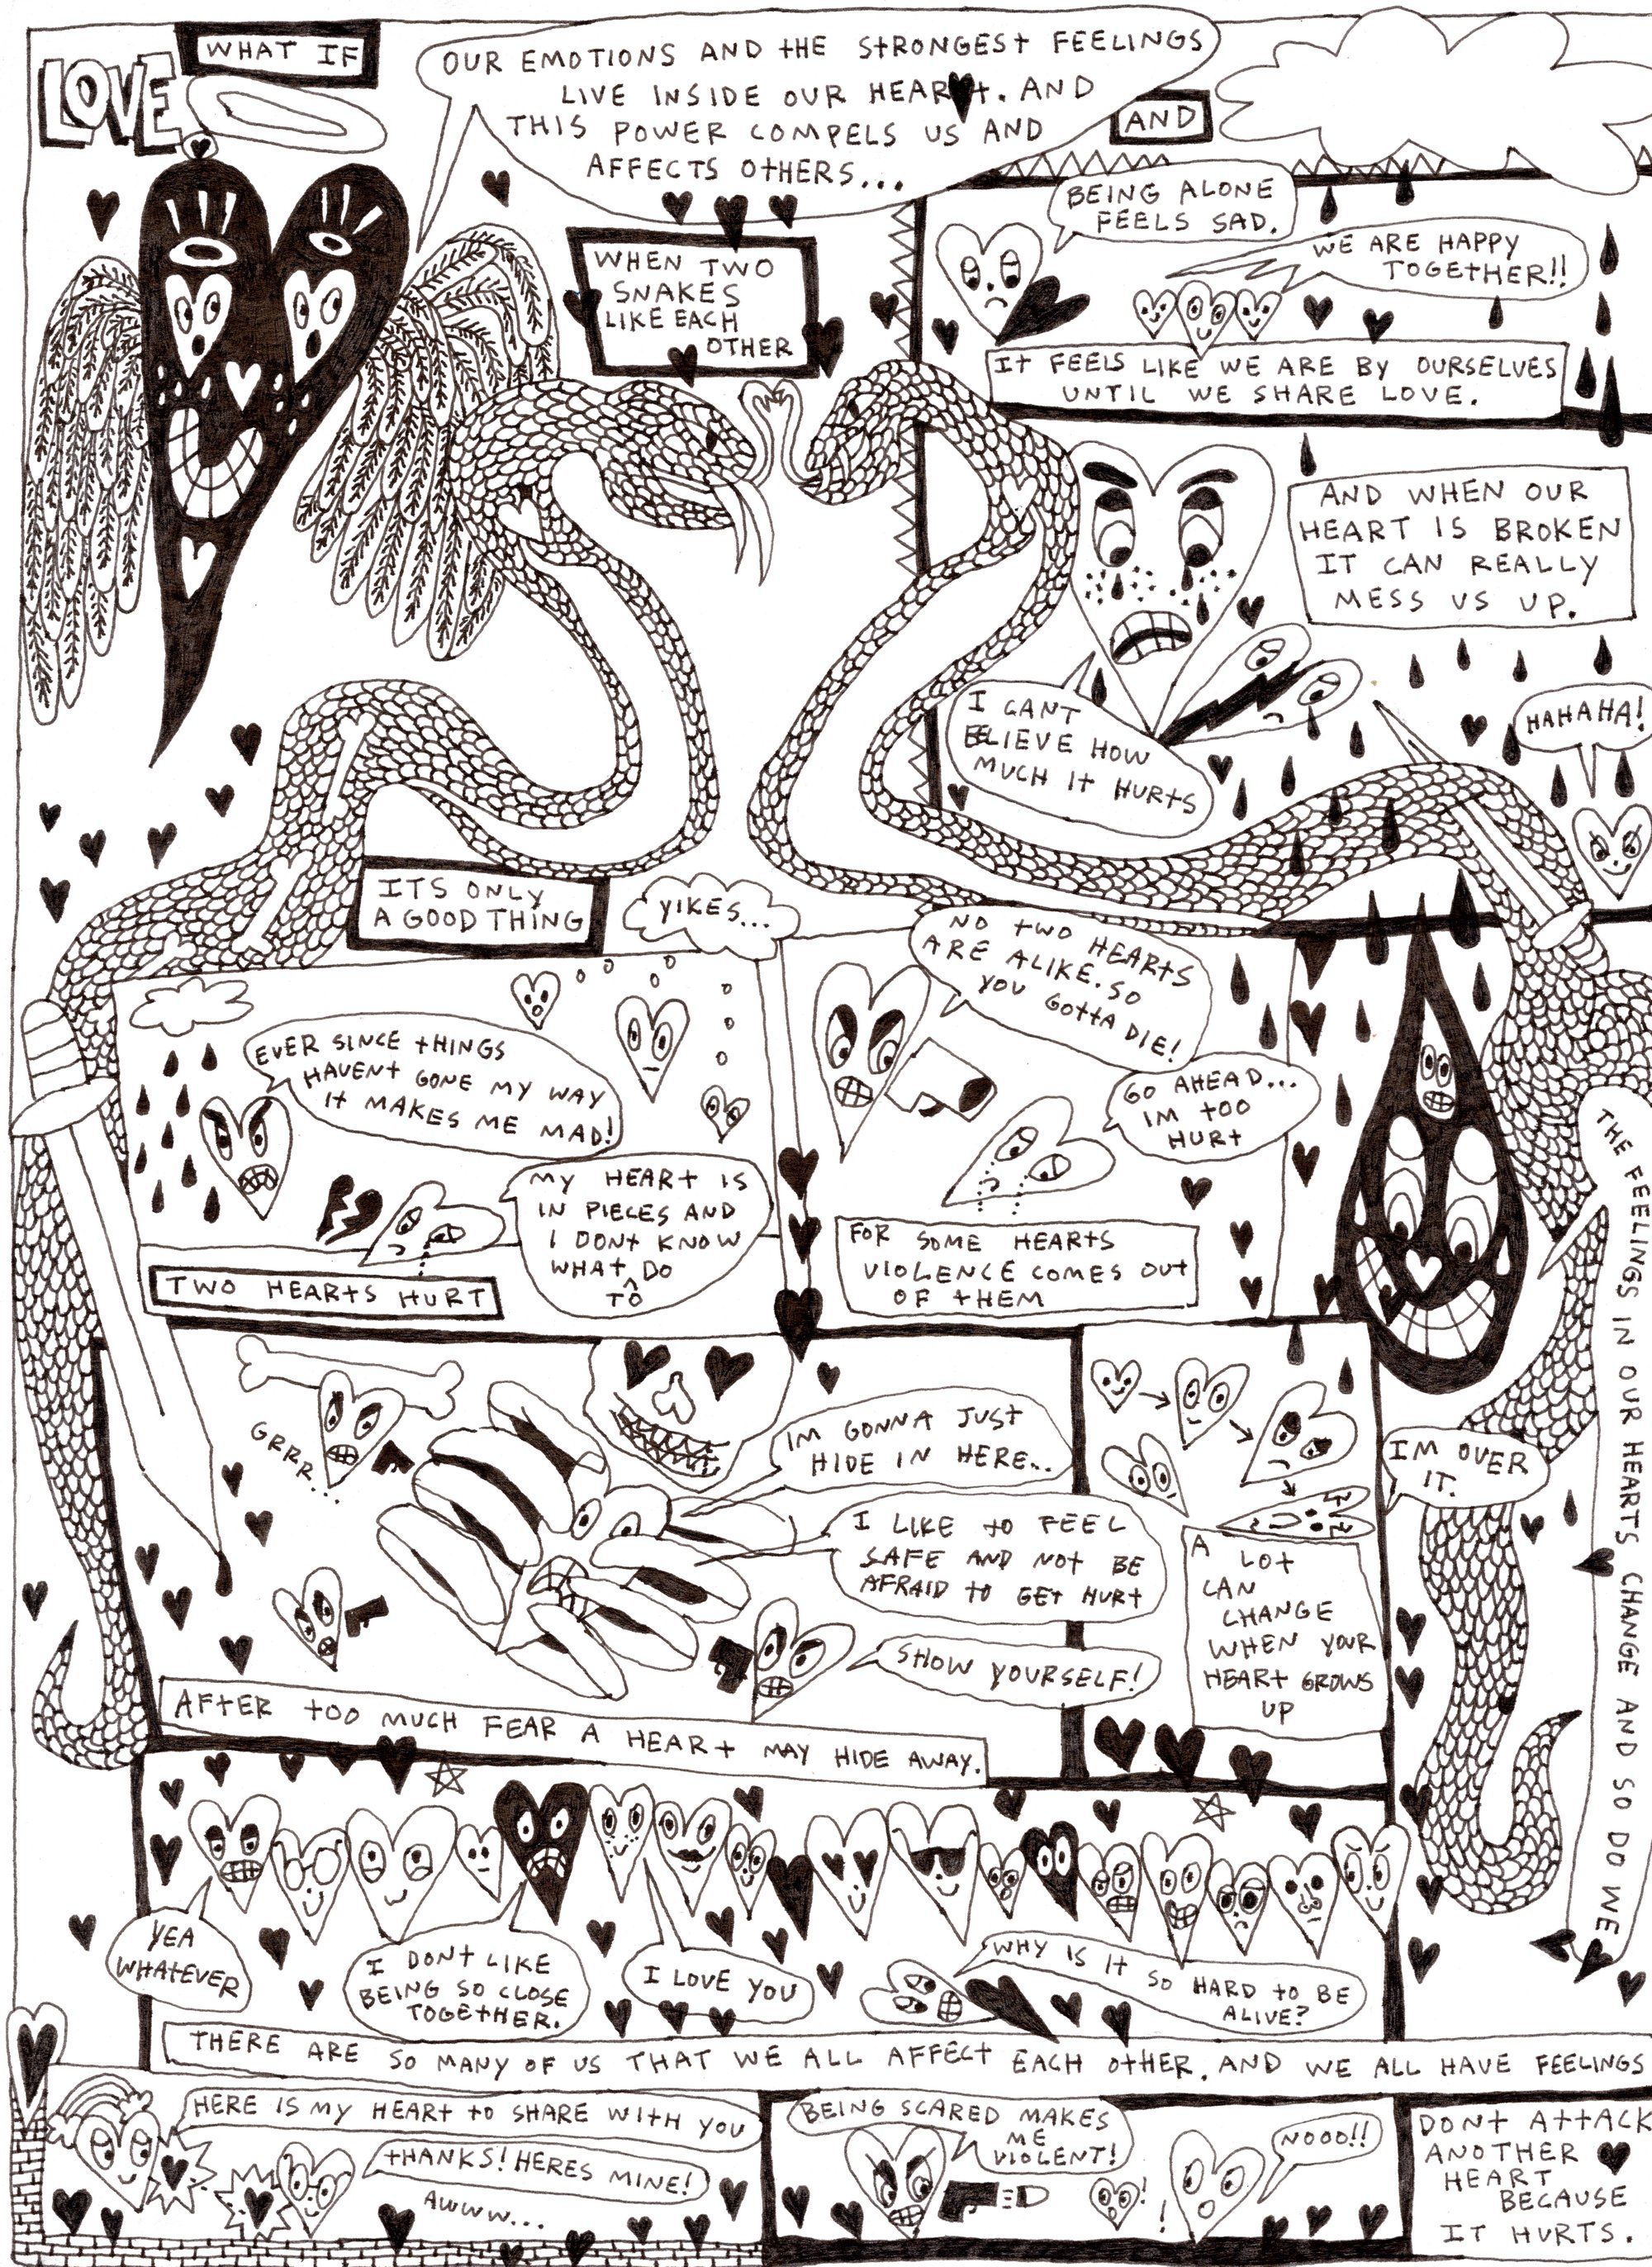 LOVE
WHAT IF
OUR EMOTIONS AND THE STRONGEST FEELINGS
LIVE INSIDE OUR HEART. AND
THIS POWER COMPELS US AND
AFFECTS OTHERS...
AND
BEING ALONE
FEELS SAD.
WE ARE HAPPY
TOGETHER!!
IT FEELS LIKE WE ARE BY OURSELVES
UNTIL WE SHARE LOVE.
WHEN TWO
SNAKES
LIKE EACH
OTHER
AND WHEN OUR
HEART IS BROKEN
IT CAN REALLY
MESS US UP.
I CANT
BELIEVE HOW
MUCH IT HURTS
HAHAHA!
ITS ONLY
A GOOD THING
YIKES...
EVER SINCE THINGS
HAVENT GONE MY WAY
IT MAKES ME MAD!
MY HEART IS
IN PIECES AND
I DONT KNOW
WHAT DO
TO
TWO HEARTS HURT
NO TWO HEARTS
ARE ALIKE. SO
YOU GOTTA DIE!
GO AHEAD...
IM TOO
HURT
FOR SOME HEARTS
VIOLENCE COMES OUT
OF THEM
THE FEELINGS IN OUR HEARTS CHANGE AND SO DO WE
GRRR...
IM GONNA JUST
HIDE IN HERE..
I LIKE TO FEEL
SAFE AND NOT BE
AFRAID TO GET HURT
SHOW YOURSELF!
AFTER TOO MUCH FEAR A HEART MAY HIDE AWAY.
IM OVER
IT.
A LOT
CAN
CHANGE
WHEN YOUR
HEART GROWS
UP
YEA
WHATEVER
I DONT LIKE
BEING SO CLOSE
TOGETHER.
I LOVE YOU
WHY IS IT SO HARD TO BE
ALIVE?
THERE ARE SO MANY OF US THAT WE ALL AFFECT EACH OTHER. AND WE ALL HAVE FEELINGS
HERE IS MY HEART TO SHARE WITH YOU
THANKS! HERES MINE!
AWWW...
BEING SCARED MAKES
ME
VIOLENT!
!
!
NOOO!!
DONT ATTACK
ANOTHER
HEART
BECAUSE
IT HURTS.